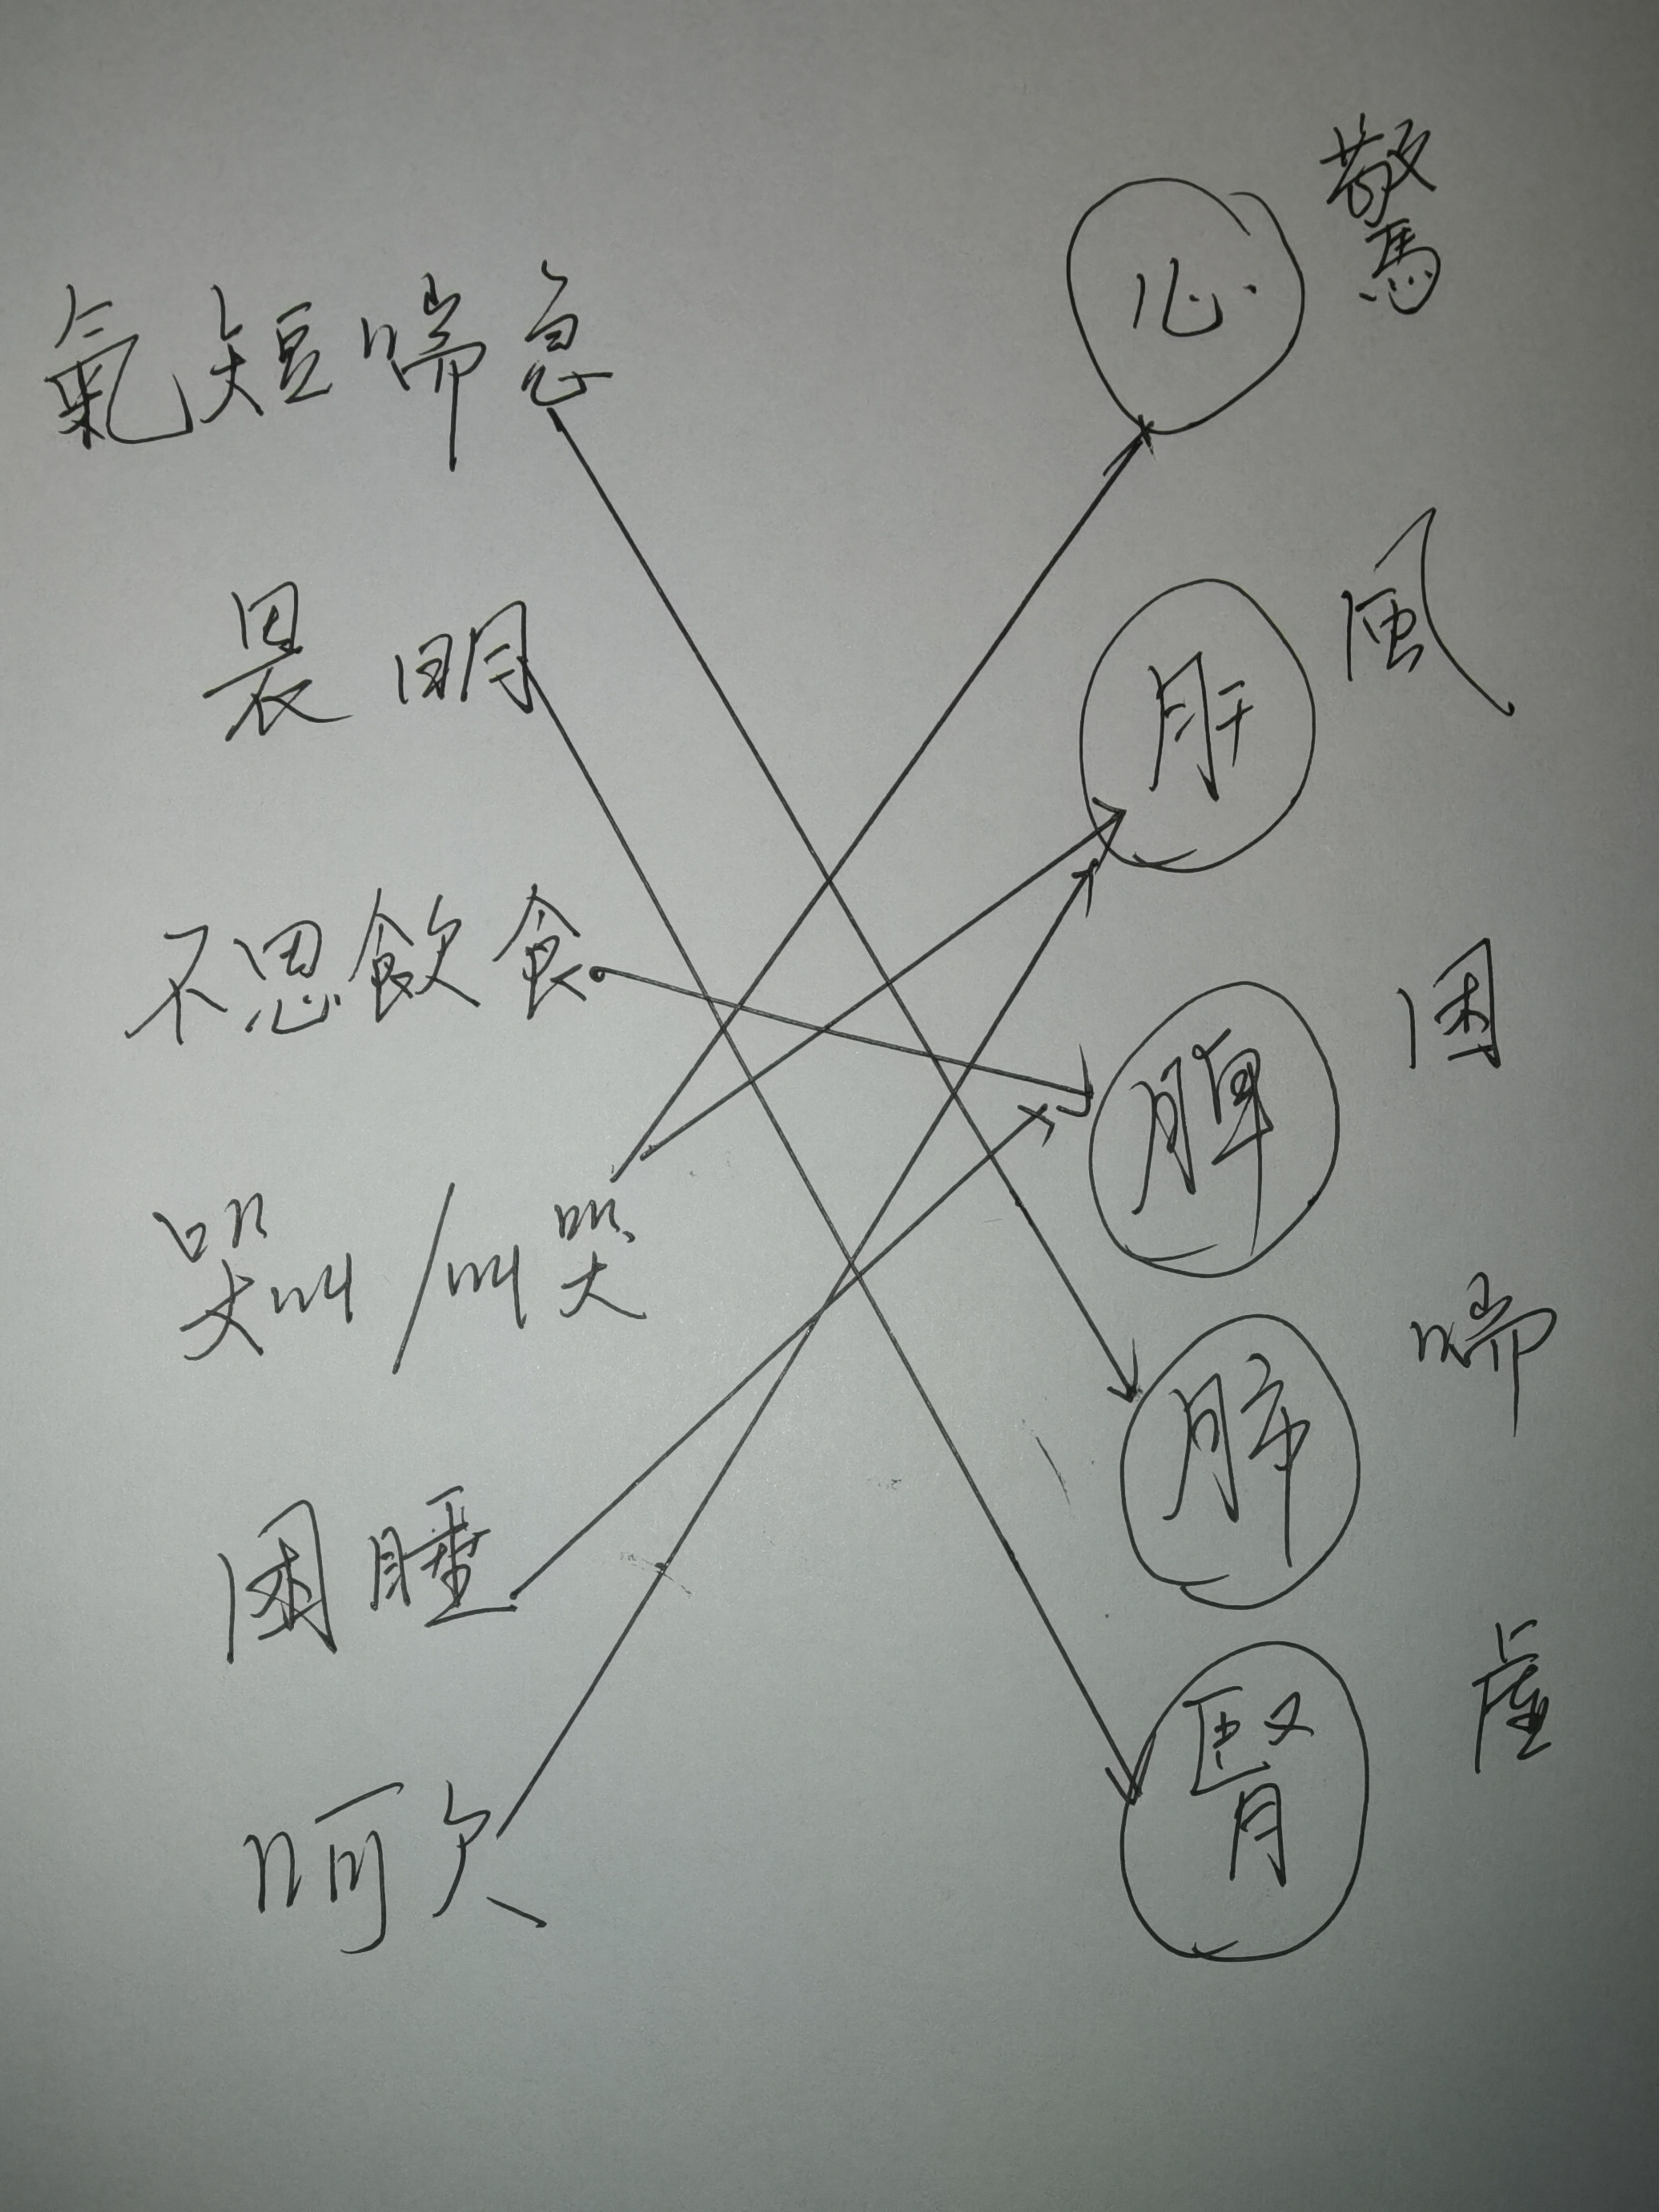 氣短喘急
畏明
不思飲食
哭叫/叫哭
困睡
呵欠
心 驚
肝 風
脾 困
肺 喘
腎 虛